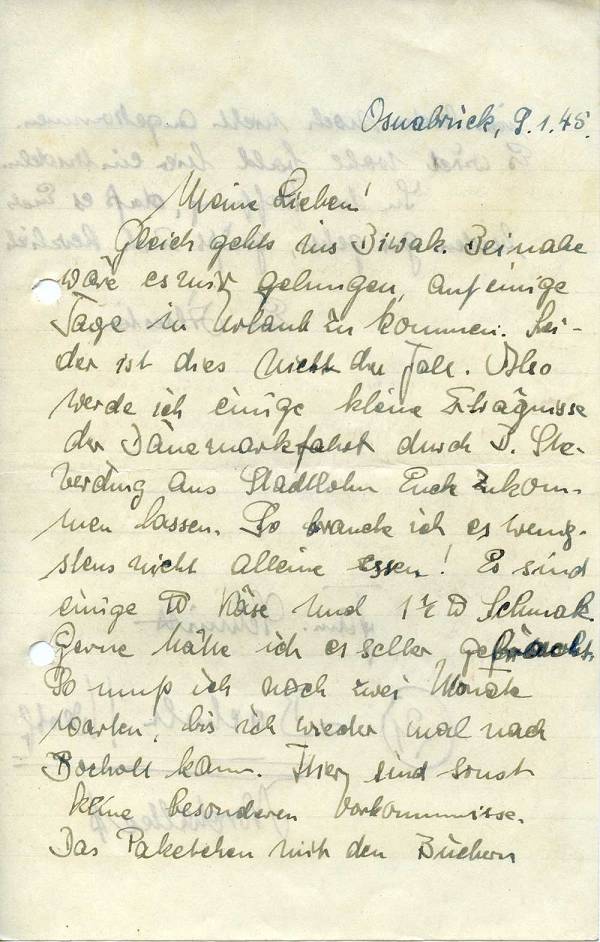 Osnabrück, 9.1.45.
Meine Lieben!
Gleich gehts ins Biwak. Beinahe
wäre es mir gelungen, auf einige
Tage in Urlaub zu kommen. Lei-
der ist dies nicht der Fall. Also
werde ich einige kleine Erträgnisse
der Dänemarkfahrt durch B. Ste-
verding aus Stadtlohn Euch zukom-
men lassen. So brauch ich es wenig-
stens nicht alleine essen! Es sind
einige ℔ Käse und 1½ ℔ Schmalz.
Gerne hätte ich es selber gebracht.
So muß ich noch zwei Monate
warten, bis ich wieder mal nach
Bocholt kann. Hier sind sonst
keine besonderen Vorkommnisse.
Das Paketchen mit den Büchern